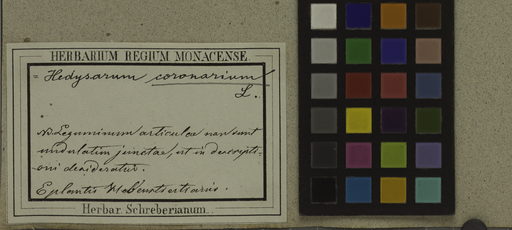 HERBARIUM REGIUM MONACENSE.
= Hedysarum coronarium
L.
NB. Leguminum articulae non sunt
undulatim junctae, ut in descripti-
oni desideratur.
E plantis
Herbar. Schreberianum.